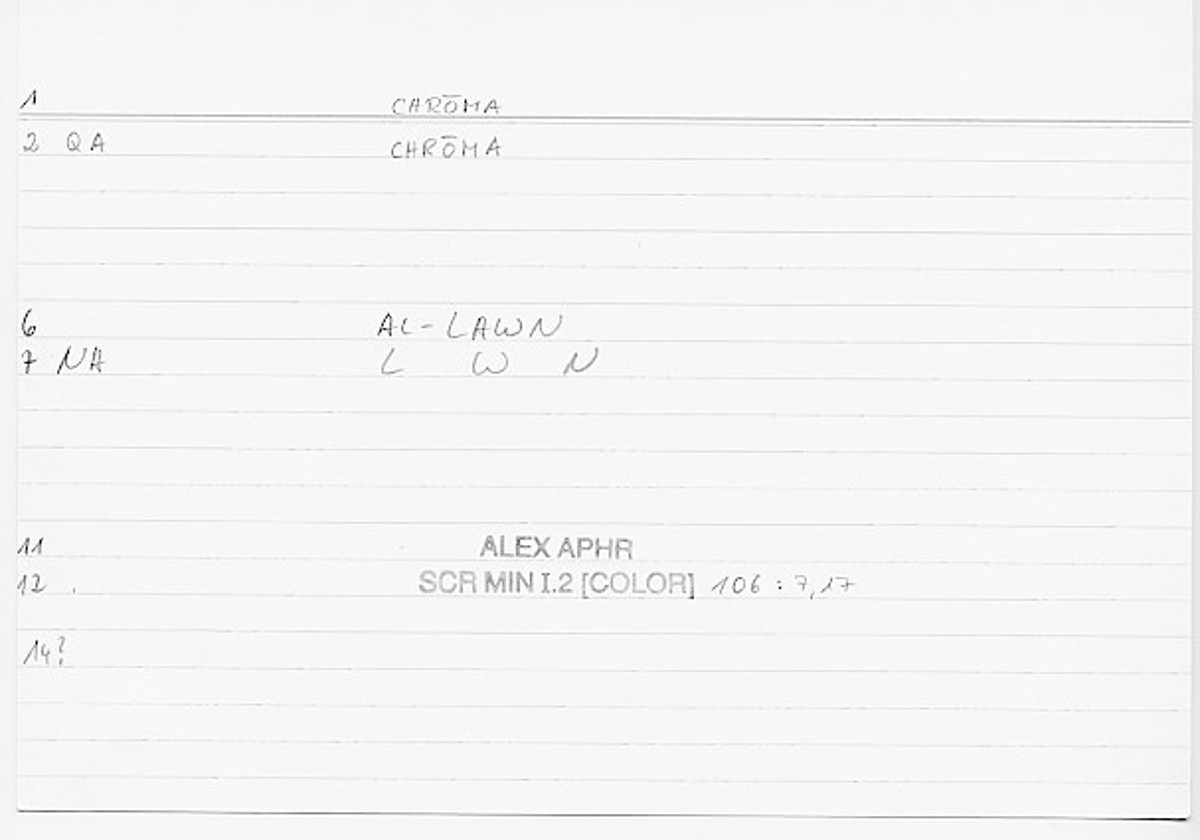 1 CHRŌMA
2 QA CHRŌMA
6 AL-LAWN
7 NA L W N
11 ALEX APHR
12 . SCR MIN I.2 [COLOR] 106 : 7,17
14?